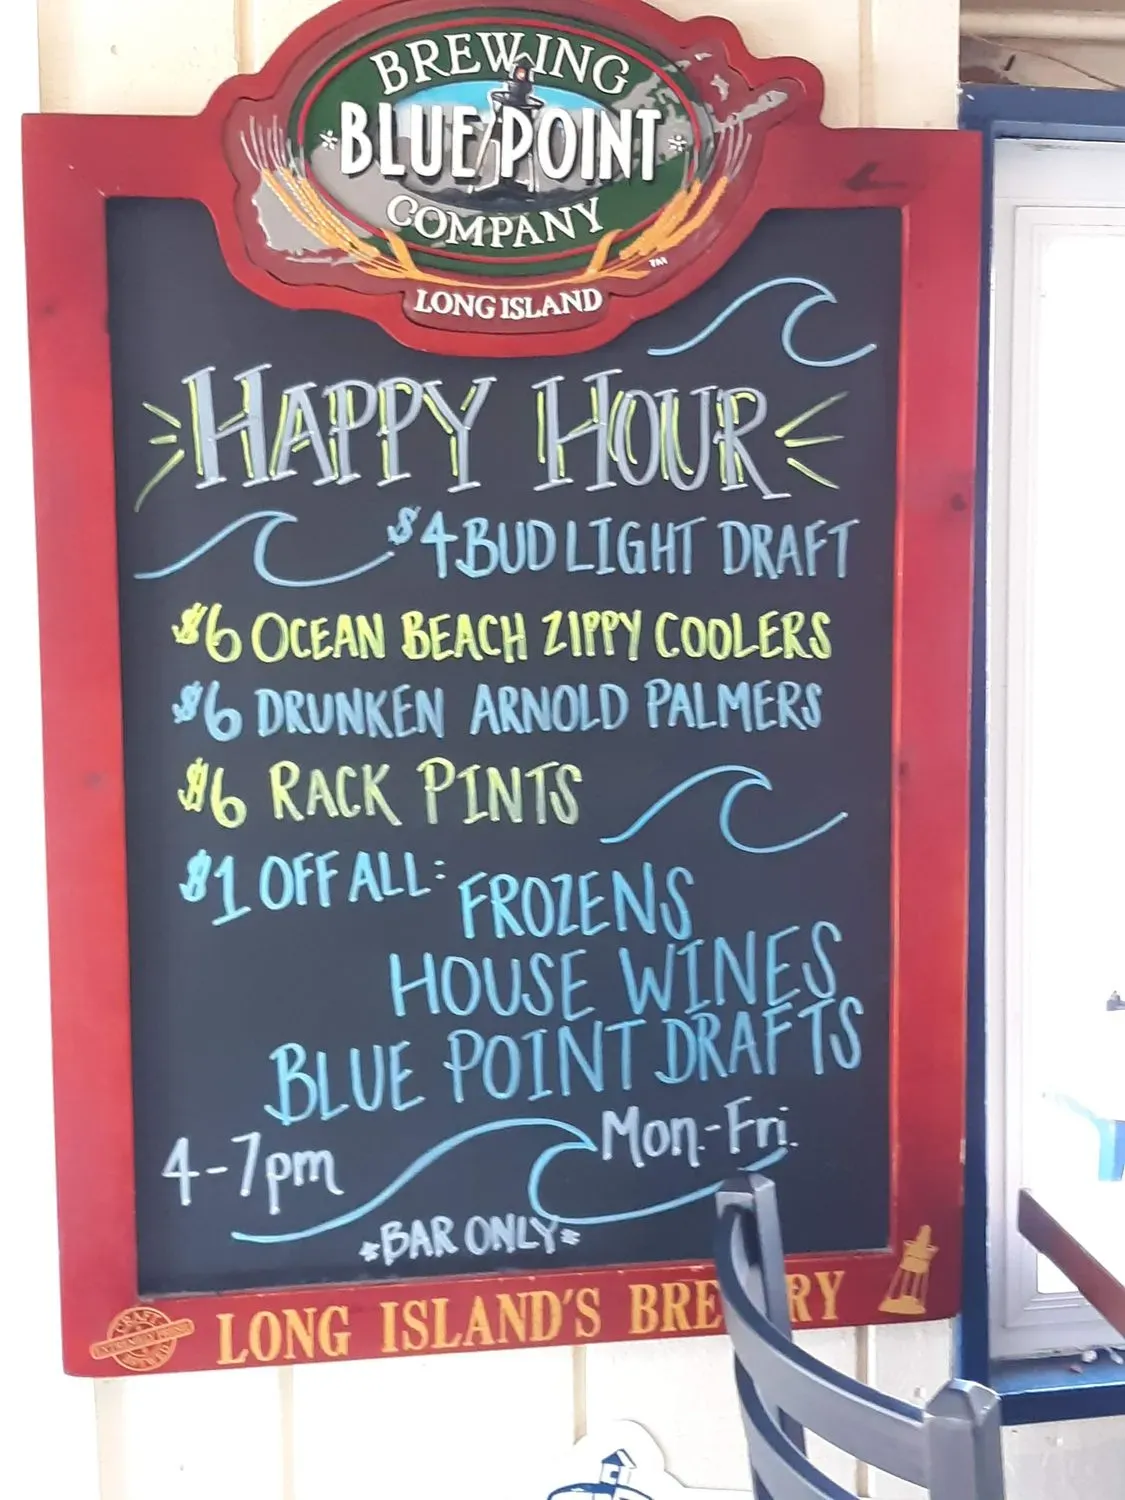 BREWING
*BLUE POINT*
COMPANY
TM
LONG ISLAND
HAPPY HOUR
$4 BUD LIGHT DRAFT
$6 OCEAN BEACH ZIPPY COOLERS
$6 DRUNKEN ARNOLD PALMERS
$6 RACK PINTS
$1 OFF ALL: FROZENS
HOUSE WINES
BLUE POINT DRAFTS
4-7pm Mon.-Fri.
*BAR ONLY*
CRAFT
LONG ISLAND'S BRE RY